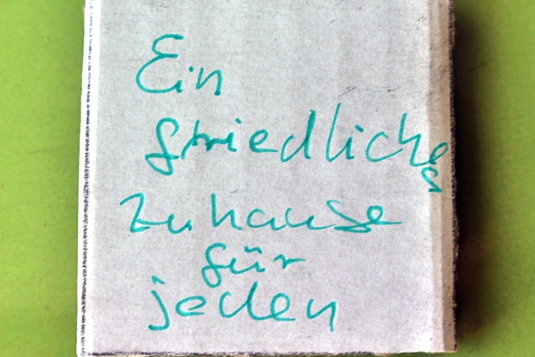 Ein
friedliches
zuhause
für
jeden